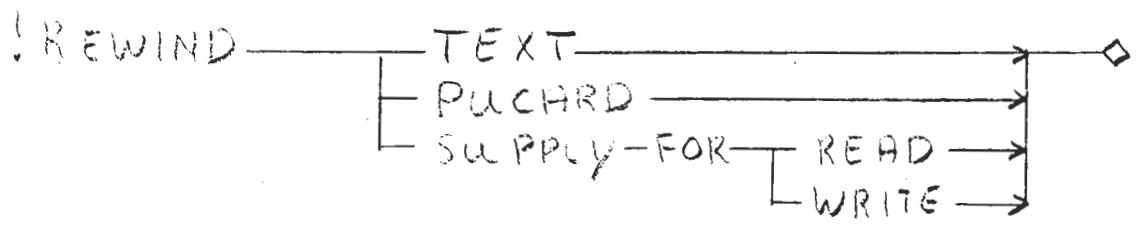 !REWIND TEXT
PUCARD
SUPPLY-FOR READ
WRITE